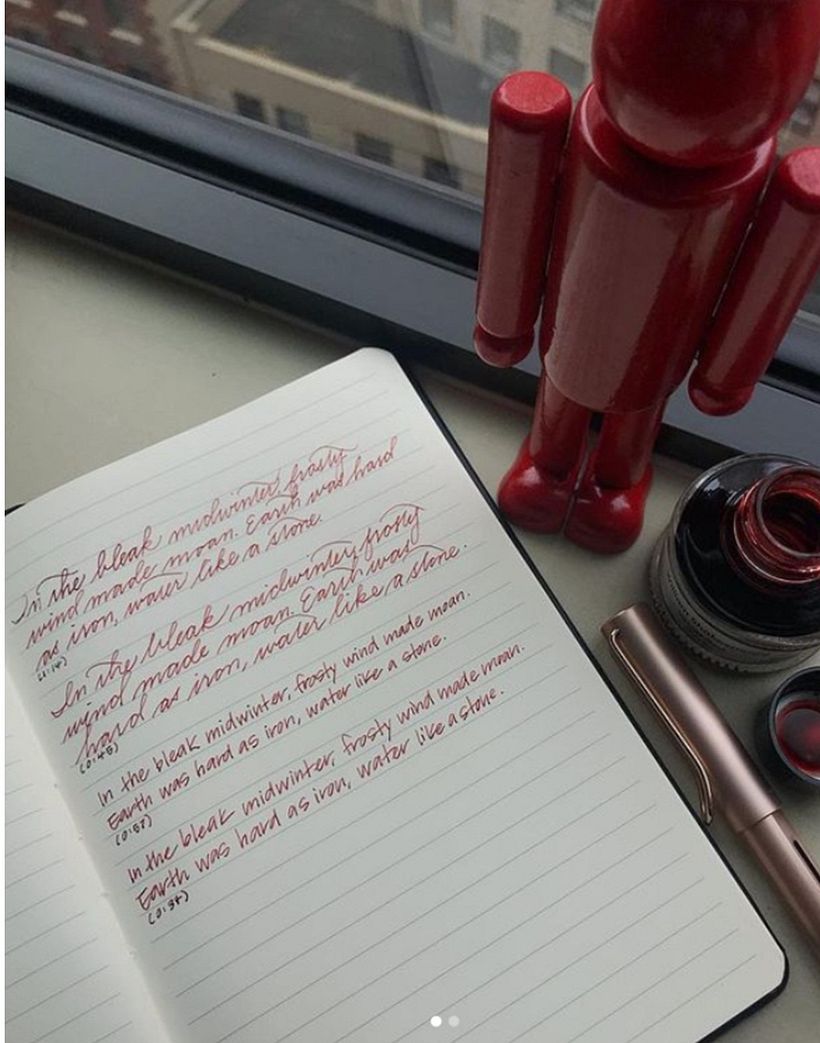 In the bleak midwinter, frosty
wind made moan. Earth was hard
as iron, water like a stone.
In the bleak midwinter, frosty
wind made moan. Earth was
hard as iron, water like a stone.
(0:48)
In the bleak midwinter, frosty wind made moan.
Earth was hard as iron, water like a stone.
(0:52)
In the bleak midwinter, frosty wind made moan.
Earth was hard as iron, water like a stone.
(0:37)